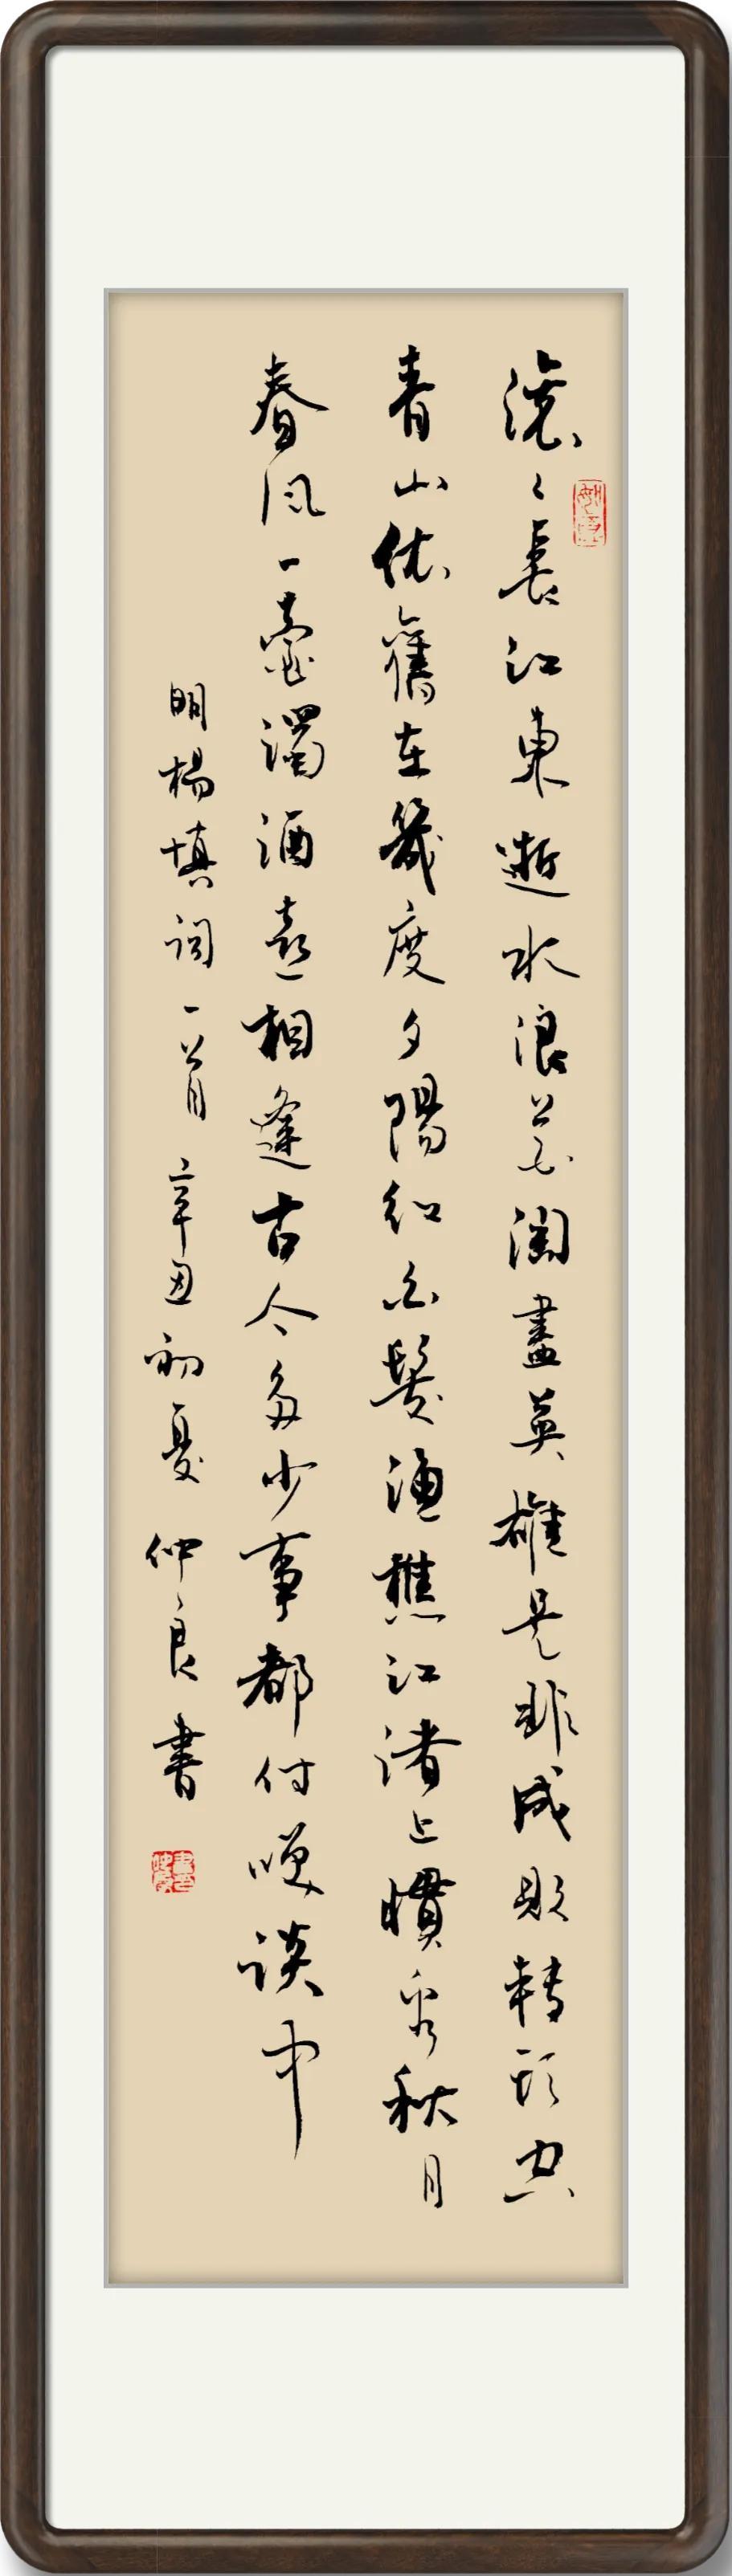 滾〻長江東逝水浪花淘盡英雄是非成敗轉頭空
青山依舊在幾度夕陽紅白髮漁樵江渚上慣看秋月
春風一壺濁酒喜相逢古今多少事都付嘆談中
明楊填詞一首辛丑初夏仲良書